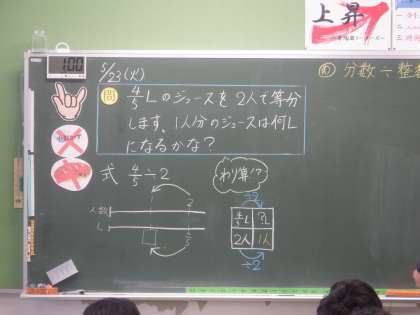 上昇
100
5/23(火)
め 分数÷整
問 4/5Lのジュースを2人で等分
します。1人分のジュースは何L
になるかな?
式 4/5÷2
わり算!?
÷2
1 2
人数
L
□ 4/5
4/5L ?L
2人 1人
÷2